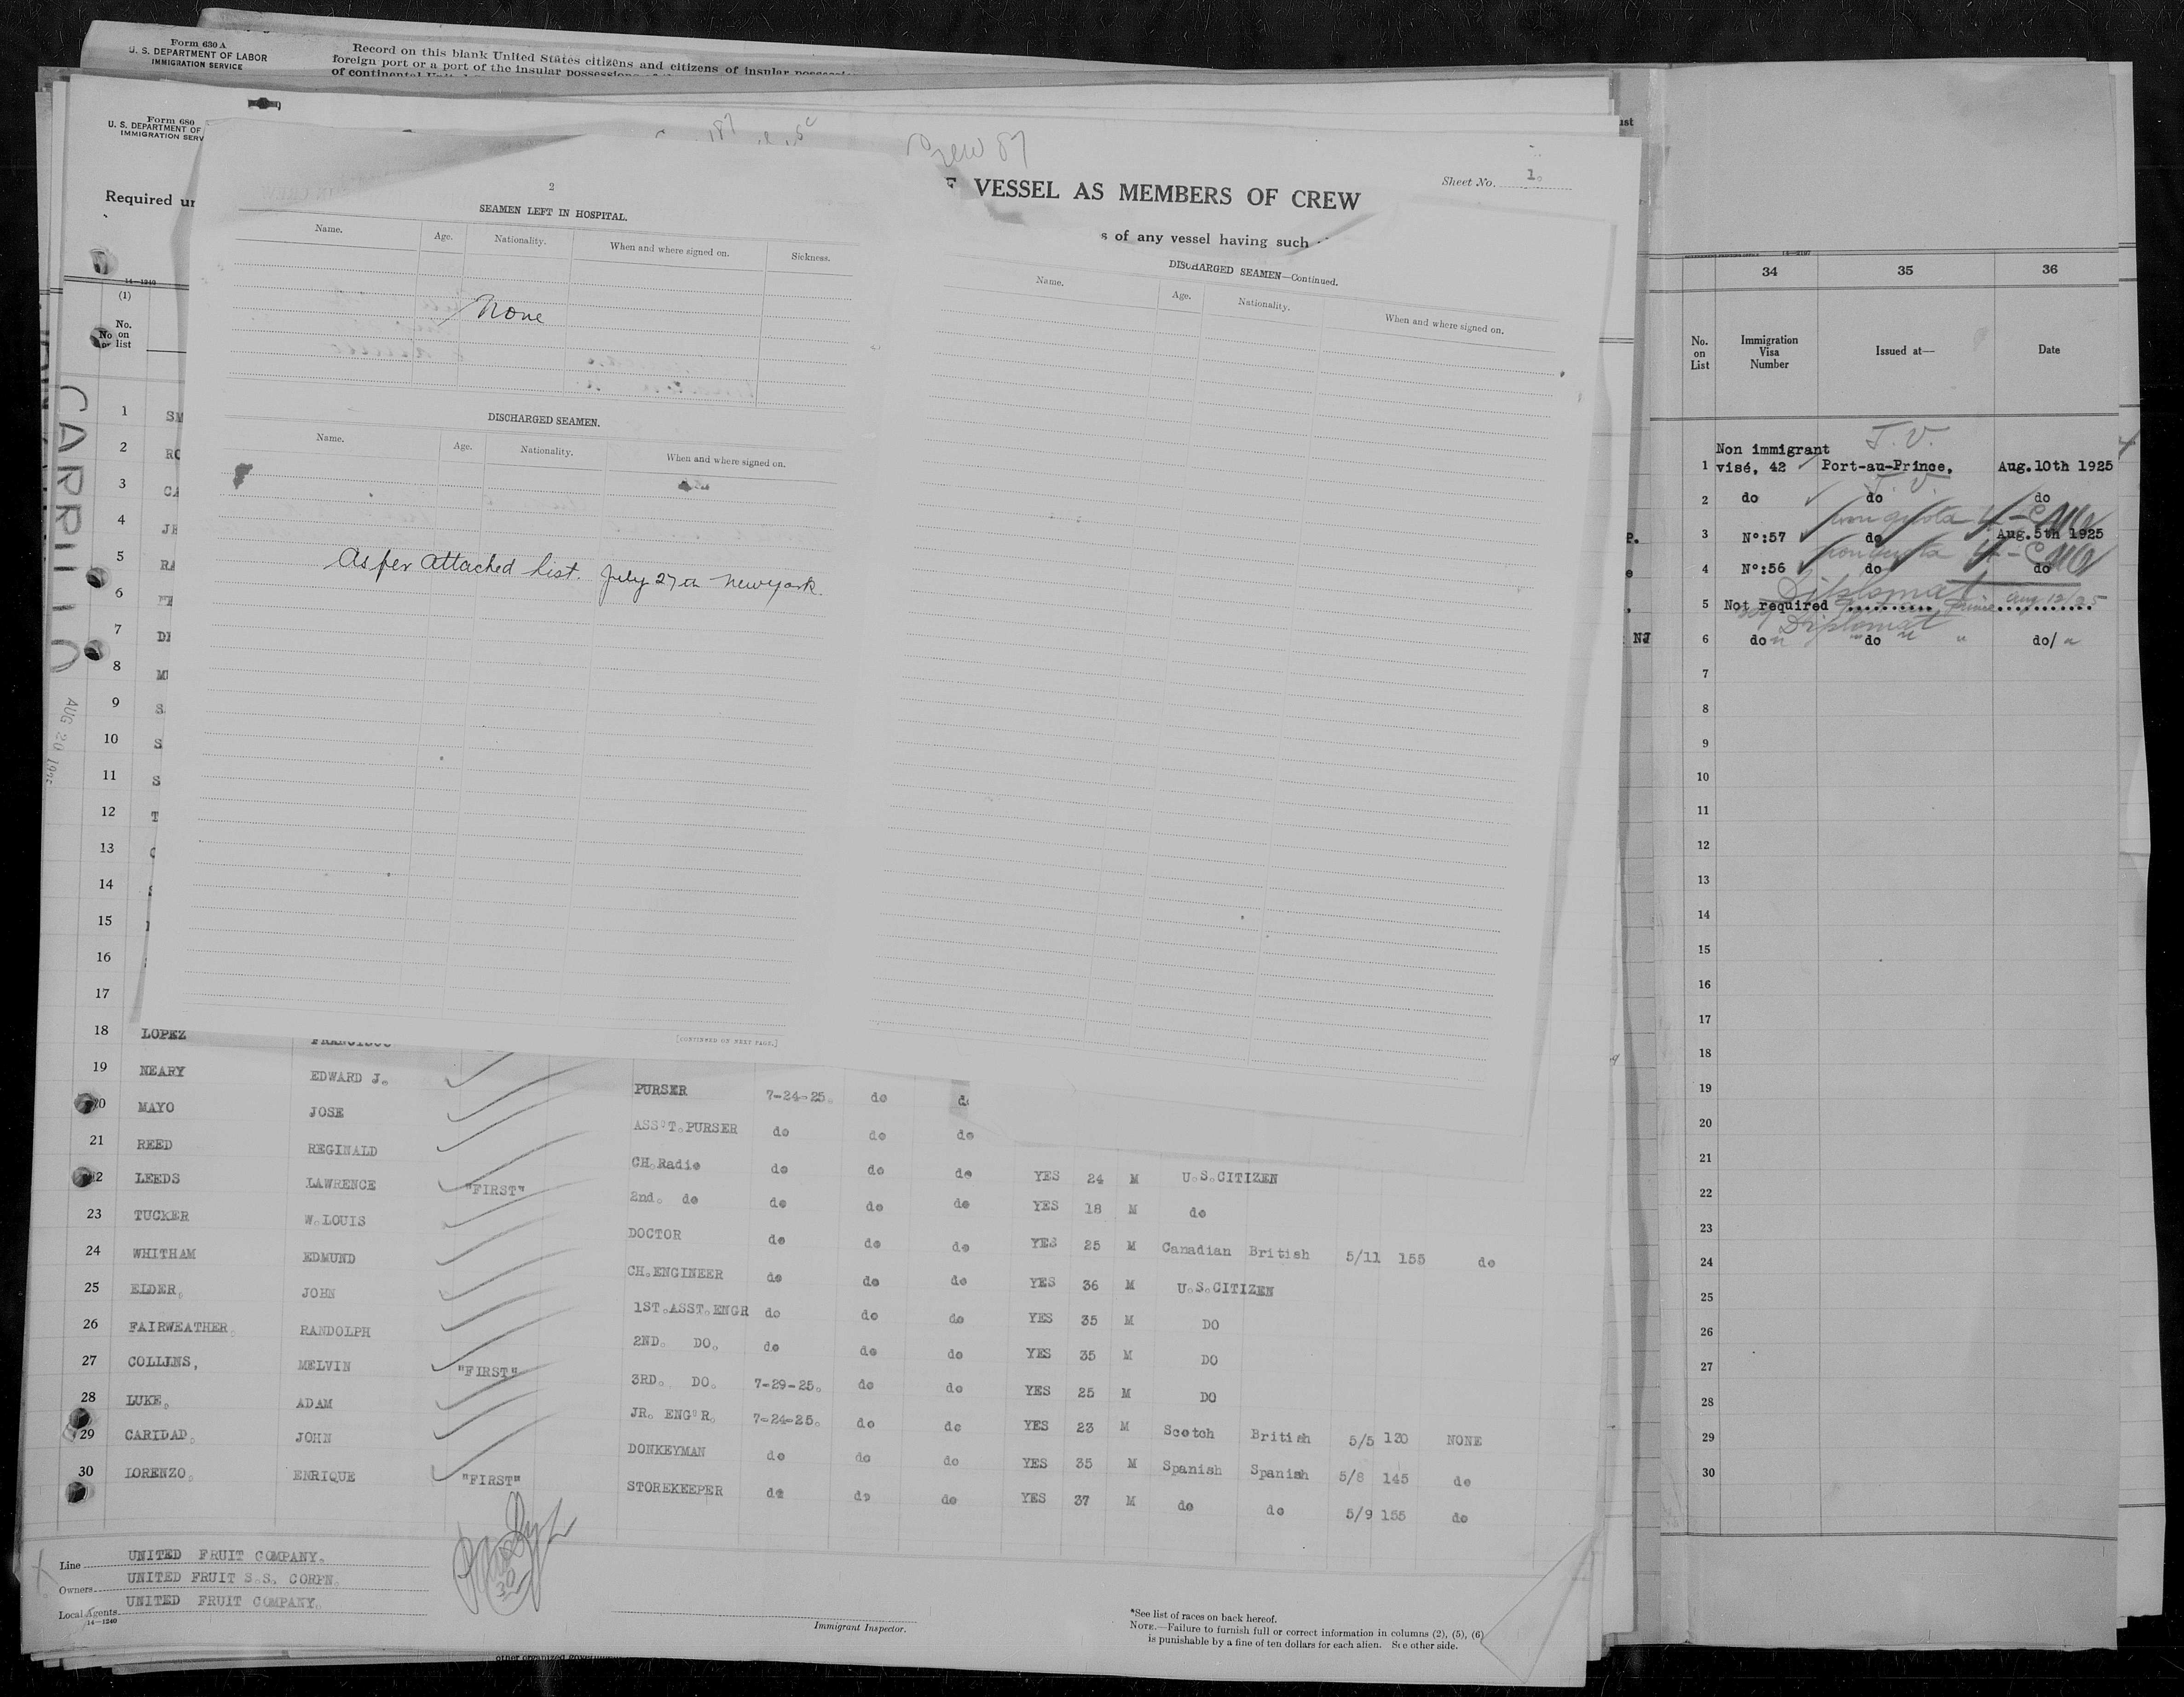 Form 630 A
U. S. DEPARTMENT OF LABOR
IMMIGRATION SERVICE
Record on this blank United States citizens and citizens of insular
foreign port or a port of the insular
of continental
Form 680
U. S. DEPARTMENT OF
IMMIGRATION SERV
Required
14—1240
(1)
No.
on
list
CARRILLO
AUG 20
Crew 87
VESSEL AS MEMBERS OF CREW
Sheet No. 1.
s of any vessel having such
2
SEAMEN LEFT IN HOSPITAL.
Name. Age. Nationality. When and where signed on. Sickness.
None
DISCHARGED SEAMEN.
Name. Age. Nationality. When and where signed on.
As per attached list. July 27th New York.
[CONTINUED ON NEXT PAGE.]
DISCHARGED SEAMEN—Continued.
Name. Age. Nationality. When and where signed on.
1 SM
2 RO
3 CA
4 JE
5 RA
6
7
8
9 S
10 S
11 S
12 T
13
14
15
16
17
18 LOPEZ FRANCISCO
19 NEARY EDWARD J. PURSER 7-24-25. do
20 MAYO JOSE ASS'T.PURSER do do do
21 REED REGINALD CH.Radio do do do YES 24 M U.S.CITIZEN
22 LEEDS LAWRENCE "FIRST" 2nd. do do do do YES 18 M do
23 TUCKER W.LOUIS DOCTOR do do do YES 25 M Canadian British 5/11 155 do
24 WHITHAM EDMUND CH.ENGINEER do do do YES 36 M U.S.CITIZEN
25 ELDER. JOHN 1ST.ASST.ENGR do do do YES 35 M DO
26 FAIRWEATHER. RANDOLPH 2ND. DO. do do do YES 35 M DO
27 COLLINS, MELVIN "FIRST" 3RD. DO. 7-29-25. do do YES 25 M DO
28 LUKE. ADAM JR. ENG'R. 7-24-25. do do YES 23 M Scotch British 5/5 130 NONE
29 CARIDAD. JOHN DONKEYMAN do do do YES 35 M Spanish Spanish 5/8 145 do
30 LORENZO. ENRIQUE "FIRST" STOREKEEPER do do do YES 37 M do do 5/9 155 do
Line UNITED FRUIT COMPANY.
Owners UNITED FRUIT S.S. CORPN.
Local Agents UNITED FRUIT COMPANY.
14—1240
30
Immigrant Inspector.
*See list of races on back hereof.
NOTE.—Failure to furnish full or correct information in columns (2), (5), (6)
is punishable by a fine of ten dollars for each alien. See other side.
34 35 36
No. on List Immigration Visa Number Issued at— Date
T. V.
Non immigrant
1 visé, 42 Port-au-Prince, Aug.10th 1925
T. V.
2 do do do
3 Nº:57 do Aug.5th 1925
4 Nº:56 do do
Diplomat
5 Not required Aug 12/25
Diplomat
6 do do do/
NJ
7
8
9
10
11
12
13
14
15
16
17
18
19
20
21
22
23
24
25
26
27
28
29
30